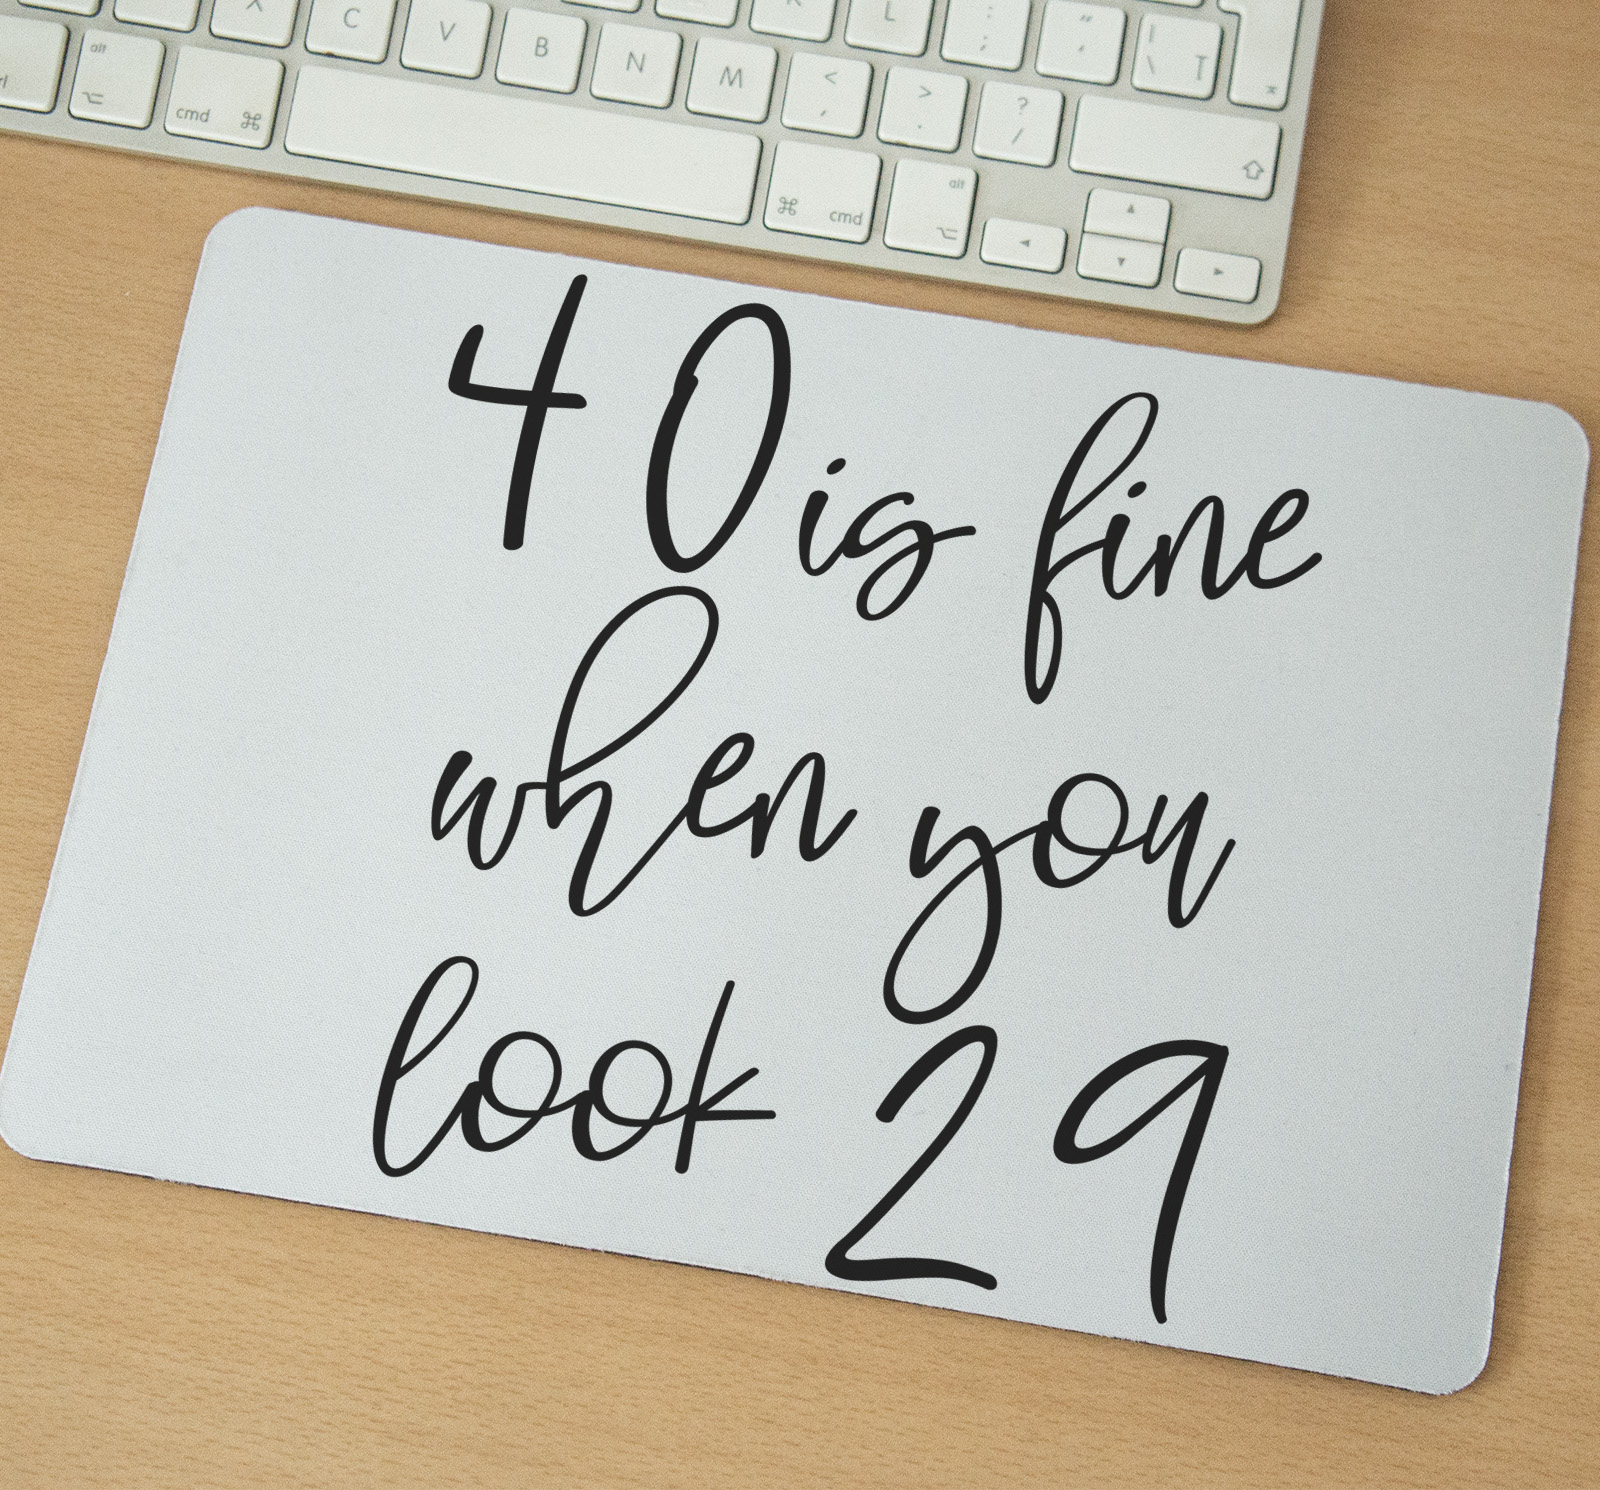 X C V B N M < , > . ? / K L : ; " ' | \
alt alt
cmd cmd
40 is fine
when you
look 29